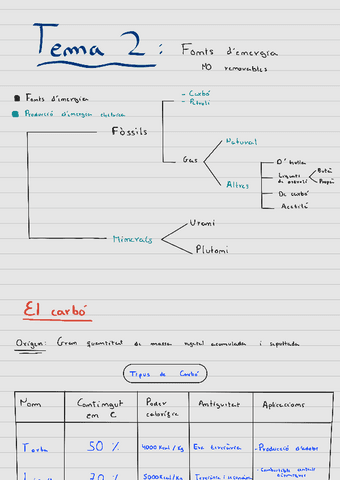 Tema 2: Fonts d'energia
NO renovables
Fonts d'energia
Producció d'energia elèctrica
Fòssils
- Carbó
- Petroli
Gas
Natural
Altres
D'hulla
Liquats de petroli
Butà
Propà
De carbó
Acetilè
Minerals
Urani
Plutoni
El carbó
Origen: Gran quantitat de massa vegetal acumulada i sepultada
Tipus de Carbó
Nom Contingut en C Poder calorífic Antiguitat Aplicacions
Torba 50 % 4000 Kcal/Kg Era terciària - Producció d'adobs
20 % 5000 Kcal/Kg Terciària i - Combustible centrals